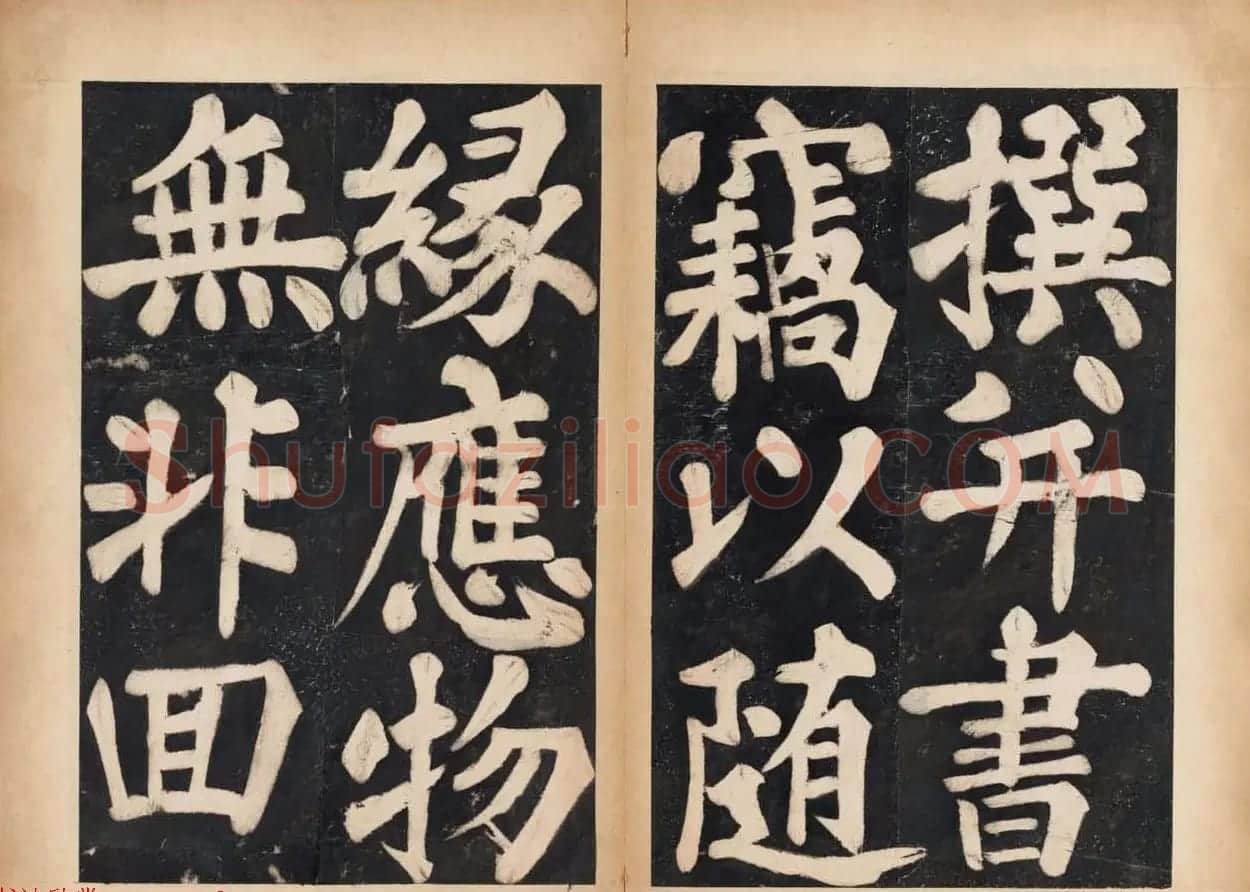 撰并書
竊以随
縁應物
無非囬
Shufaziliao.COM